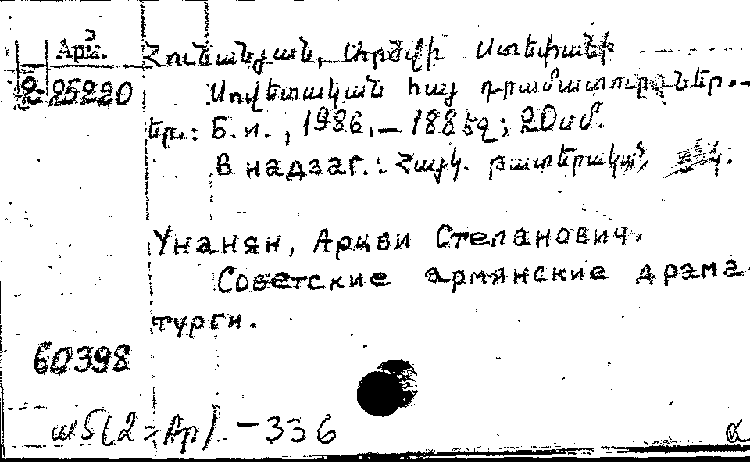 Арм.
2-25220
Հունանյան, Արծվի Ստեփանի
Սովետական հայ դրամատուրգներ.-
Եր.: Б.и., 1986.- 188 էջ; 20 սմ.
В надзаг.: Հայկ. թատերական
Унанян, Арцви Степанович.
Советские армянские драма-
турги.
60398
Ш5(2=Ар) -336